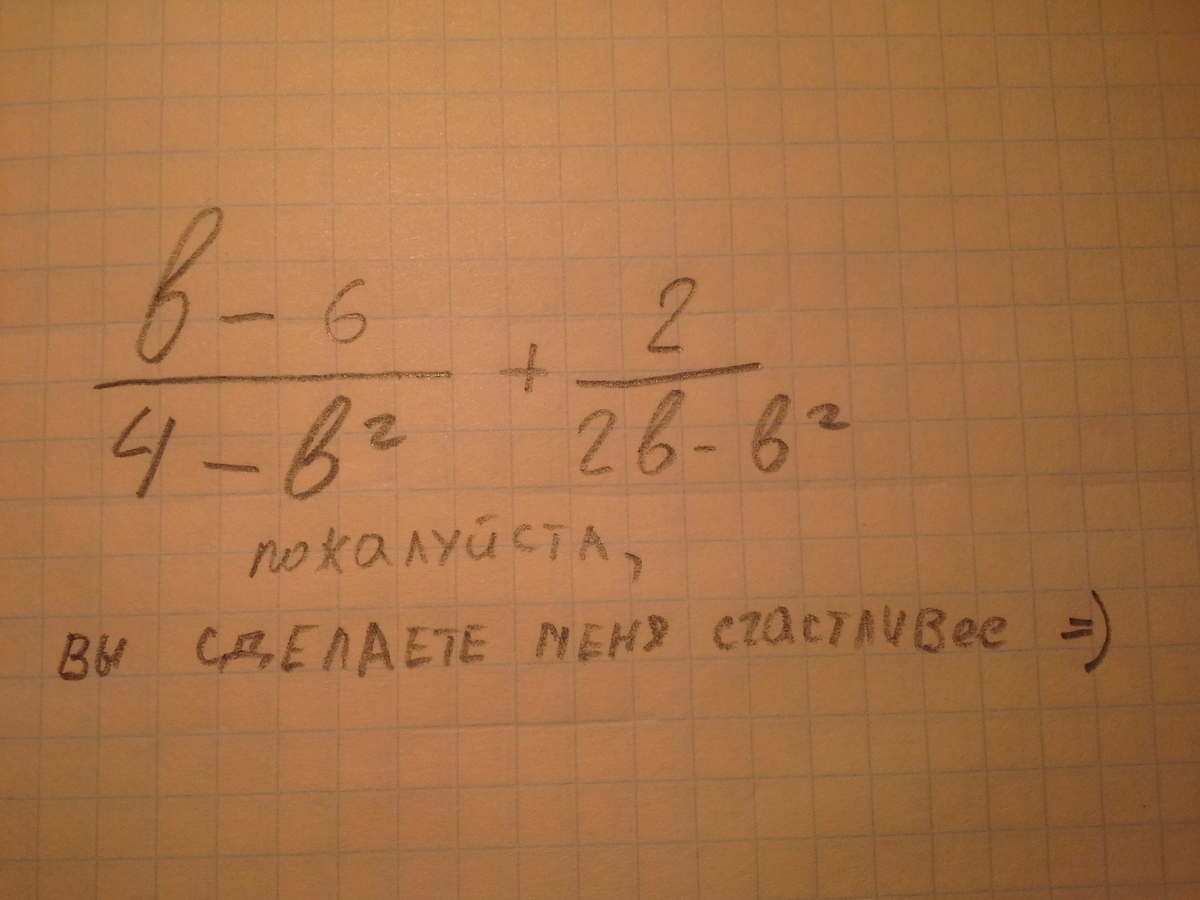 в - 6 2
4 - в² + 2в - в²
пожалуйста,
вы сделаете меня счастливее =)